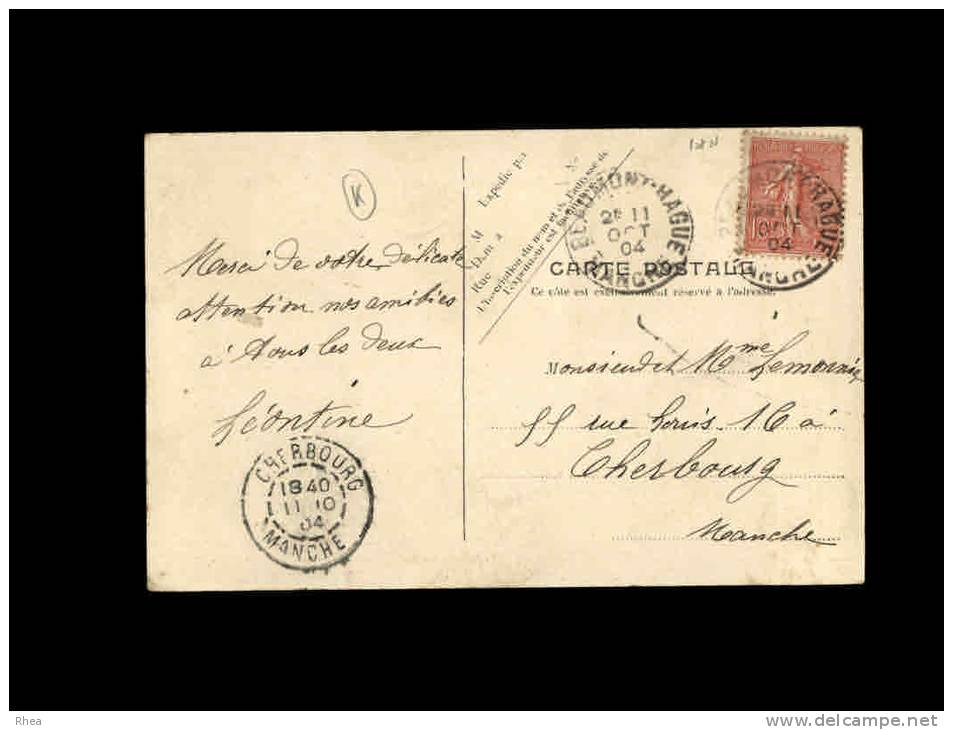 K
Merci de votre délicate
attention nos amitiés
à tous les deux
Léontine
CHERBOURG
18 40
11 10
04
MANCHE
Expédié par
M
Dem à
Rue
N°
L'inscription du nom et de l'adresse de
l'Expéditeur est
BEAUMONT-HAGUE
2E 11
OCT
04
MANCHE
HAGUE
2E 11
OCT
04
MANCHE
CARTE POSTALE
Ce côté est exclusivement réservé à l'adresse.
Monsieur et Mme Lemonnier
55 rue Louis 16 à
Cherbourg
Manche
Rhea
www.delcampe.net